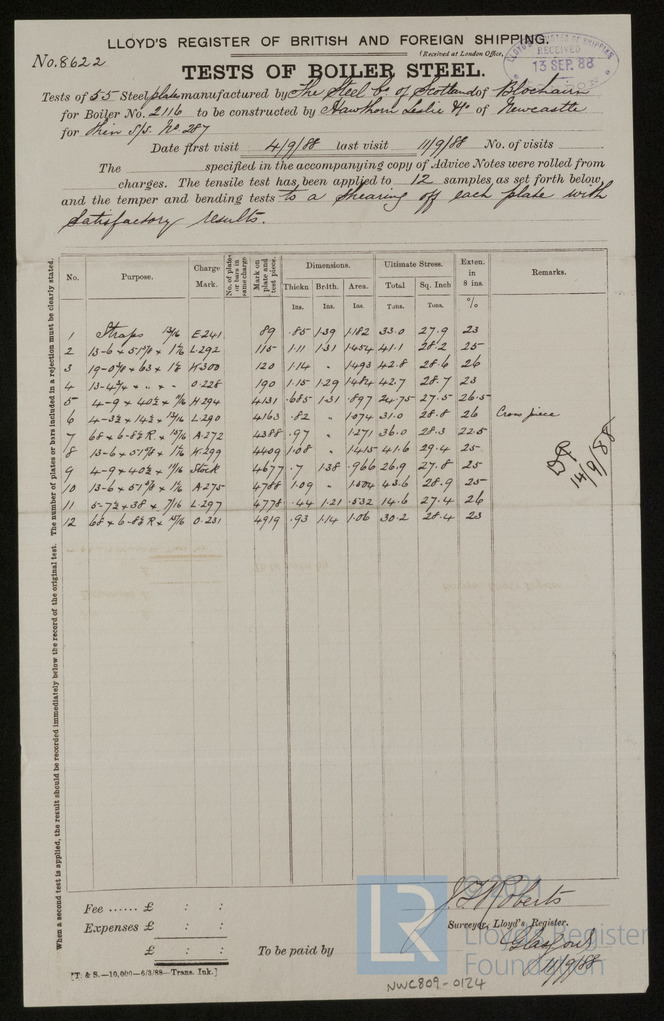 LLOYD'S REGISTER OF BRITISH AND FOREIGN SHIPPING.
No. 8622
(Received at London Office,
LLOYD'S REGISTER OF SHIPPING
RECEIVED
13 SEP. 88
LONDON
TESTS OF BOILER STEEL.
Tests of 55 Steel plates manufactured by The Steel Co of Scotland of Blochairn
for Boiler No. 2116 to be constructed by Hawthorn Leslie & Co of Newcastle
for their S/S. No 287
Date first visit 4/9/88 last visit 11/9/88 No. of visits
The specified in the accompanying copy of Advice Notes were rolled from
charges. The tensile test has been applied to 12 samples, as set forth below,
and the temper and bending tests to a shearing off each plate with
satisfactory results.
No. Purpose. Charge Mark. No. of plates or bars in same charge Mark on plate and test piece. Dimensions. Ultimate Stress. Exten. in 8 ins. Remarks.
Thickn Br-lth. Area. Total Sq. Inch
Ins. Ins. Ins. Tons. Tons. %
1 Straps 13/16 E241 89 .85 1.39 1.182 33.0 27.9 23
2 L292 115 1.11 1.31 1.454 41.1 28.2 25
3 K300 120 1.14 " 1.493 42.8 28.6 26
4 0.228 190 1.15 1.29 1.484 42.7 28.7 23
5 H294 4131 .685 1.31 .897 24.75 27.5 26.5
6 L290 4163 .82 " 1.074 31.0 28.8 26 Cross piece
7 A272 4388 .97 " 1.271 36.0 28.3 22.5
8 K299 4409 1.08 " 1.415 41.6 29.4 25
9 4-9 × 40½ × 11/16 Stock 4677 .7 1.38 .966 26.9 27.8 25
10 A275 4788 1.09 " 1.504 43.6 28.9 25
11 5-7½ × 38 × 7/16 L297 4778 .44 1.21 .532 14.6 27.4 26
12 0.231 4919 .93 1.14 1.06 30.2 28.4 23
14/9/88
When a second test is applied, the result should be recorded immediately below the record of the original test. The number of plates or bars included in a rejection must be clearly stated.
Fee ...... £ : :
Expenses £ : :
£ : :
To be paid by
J. Roberts
Surveyor, Lloyd's Register.
Glasgow
11/9/88
[T. & S.—10,000—6/3/88—Trans. Ink.]
NWC809-0124
LR
© 2021
Lloyd's Register
Foundation